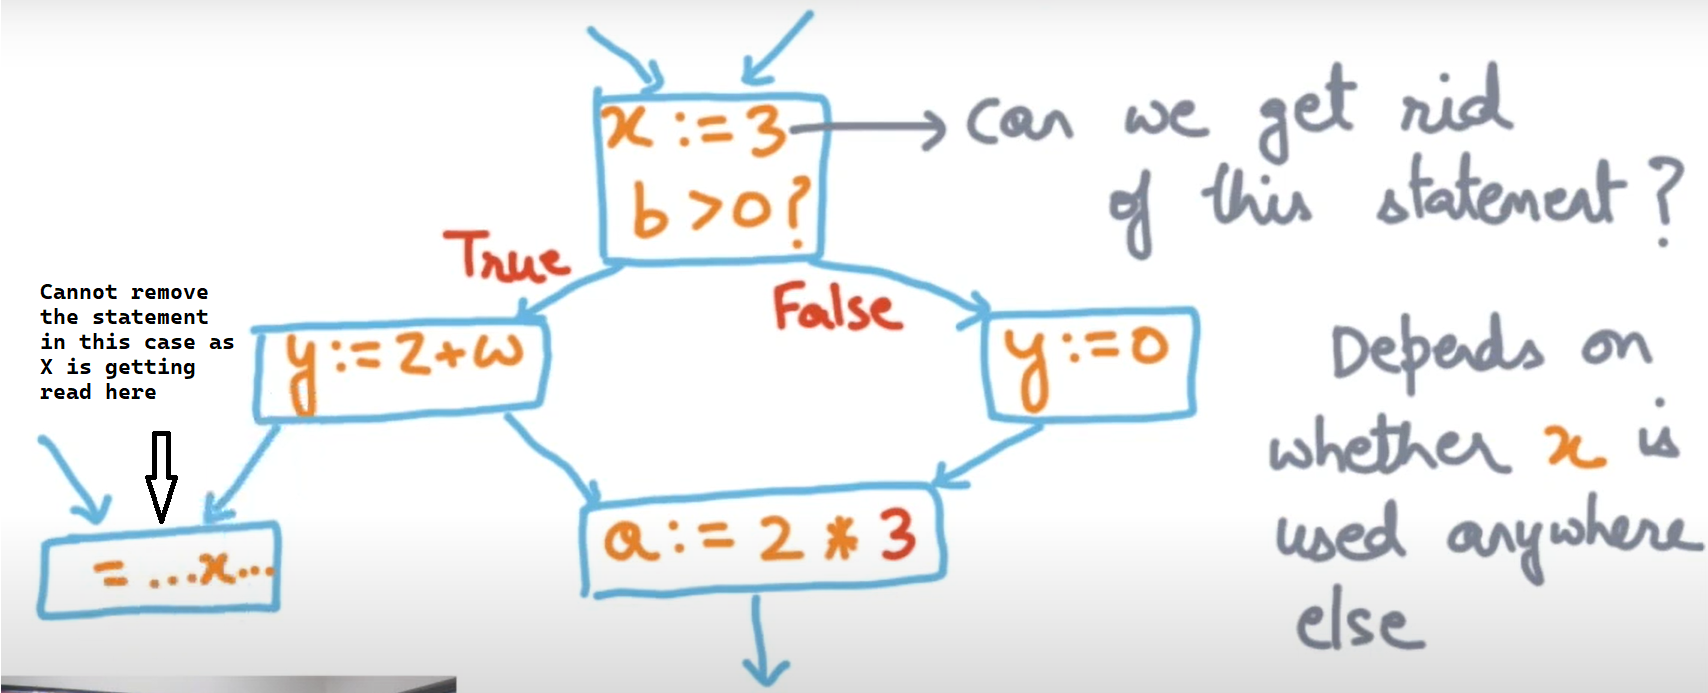 x := 3
b > 0 ?
can we get rid
of this statement ?
True
False
Cannot remove
the statement
in this case as
X is getting
read here
y := 2 + w
y := 0
Depends on
whether x is
used anywhere
else
= ...x...
a := 2 * 3